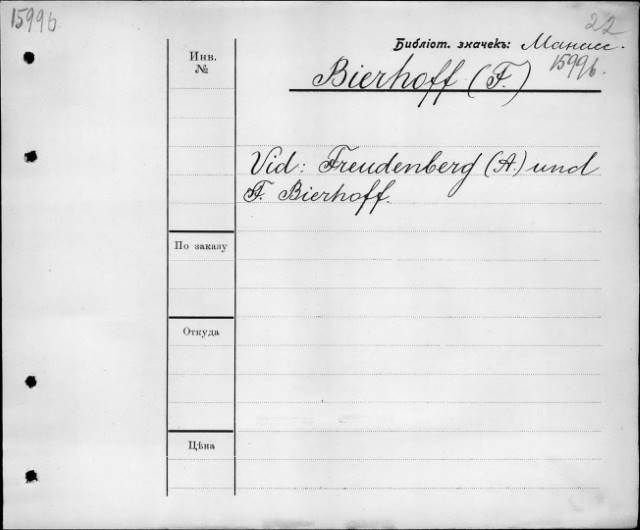 15996
22
Библіот. значекъ: Манасс.
15996.
Инв. №
Bierhoff (F.)
Vid: Freudenberg (A.) und
F. Bierhoff.
По заказу
Откуда
Цѣна